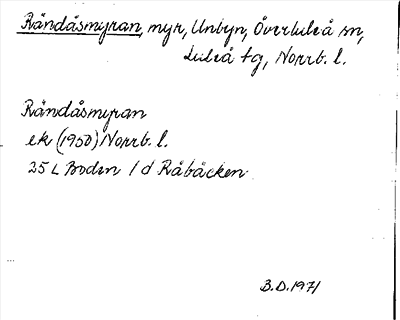 Rändåsmyran, myr, Unbyn, Överluleå sn,
Luleå tg, Norrb. l.
Rändåsmyran
ek (1950) Norrb. l.
25 L Boden 1 d Råbäcken
B.D. 1971